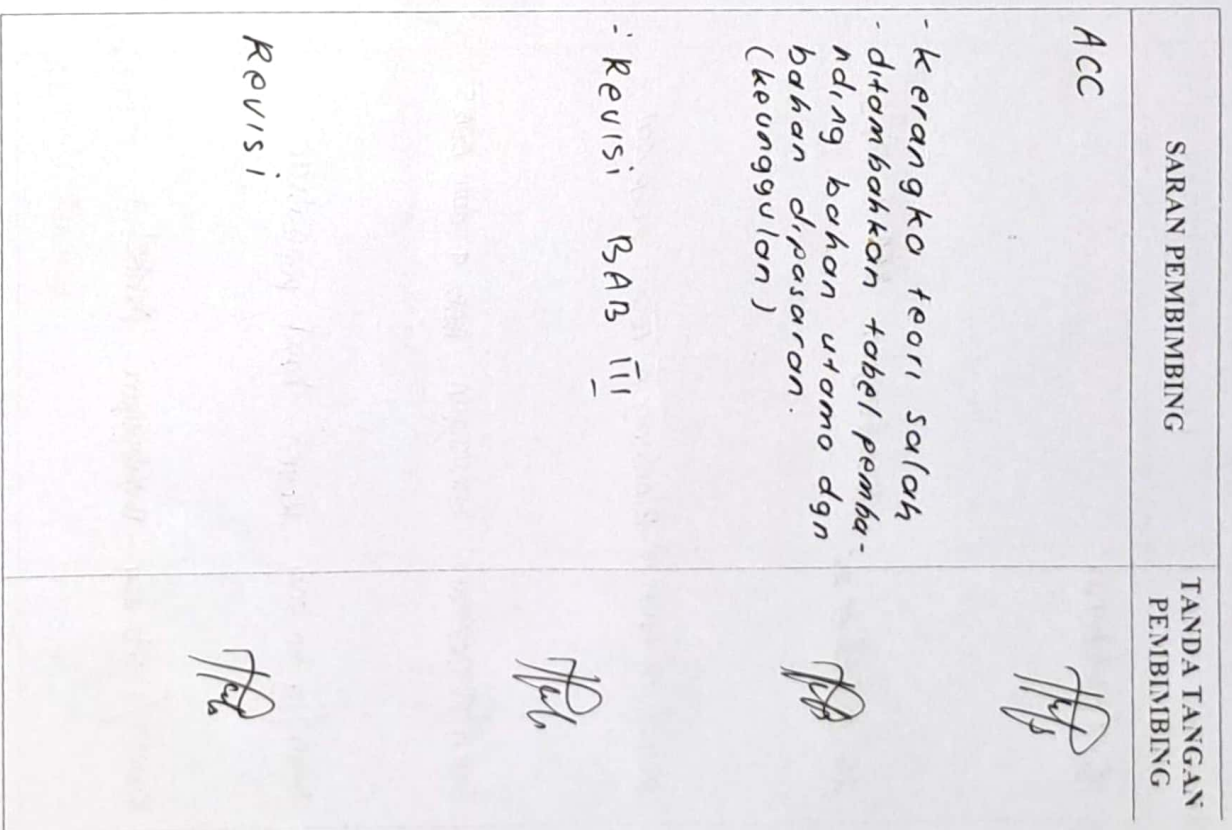 SARAN PEMBIMBING
TANDA TANGAN
PEMBIMBING
ACC
- kerangka teori salah
- ditambahkan tabel pemba-
nding bahan utama dgn
bahan dipasaran.
(keunggulan)
- Revisi BAB III
Revisi